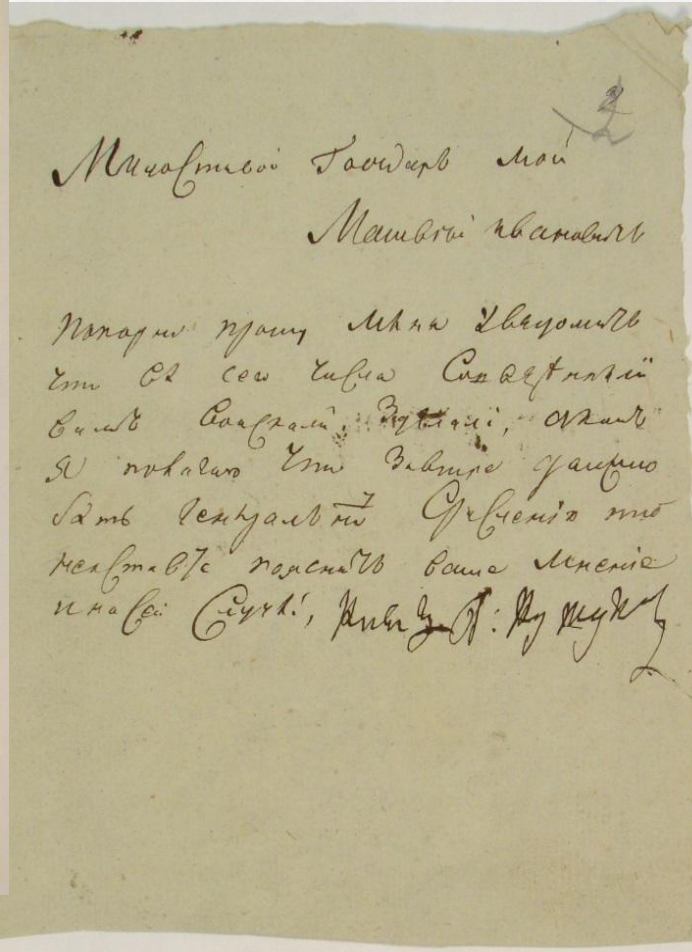 2
Милостивой Государь мой
Матвей Ивановичь
покорно прошу меня уведомить
что съ сего числа
вамъ войсками,
я полагаю что завтре должно
быть генеральному сражению то
неоставте пояснить ваше мнение
и на сей случай, Князь Г: Кутузов